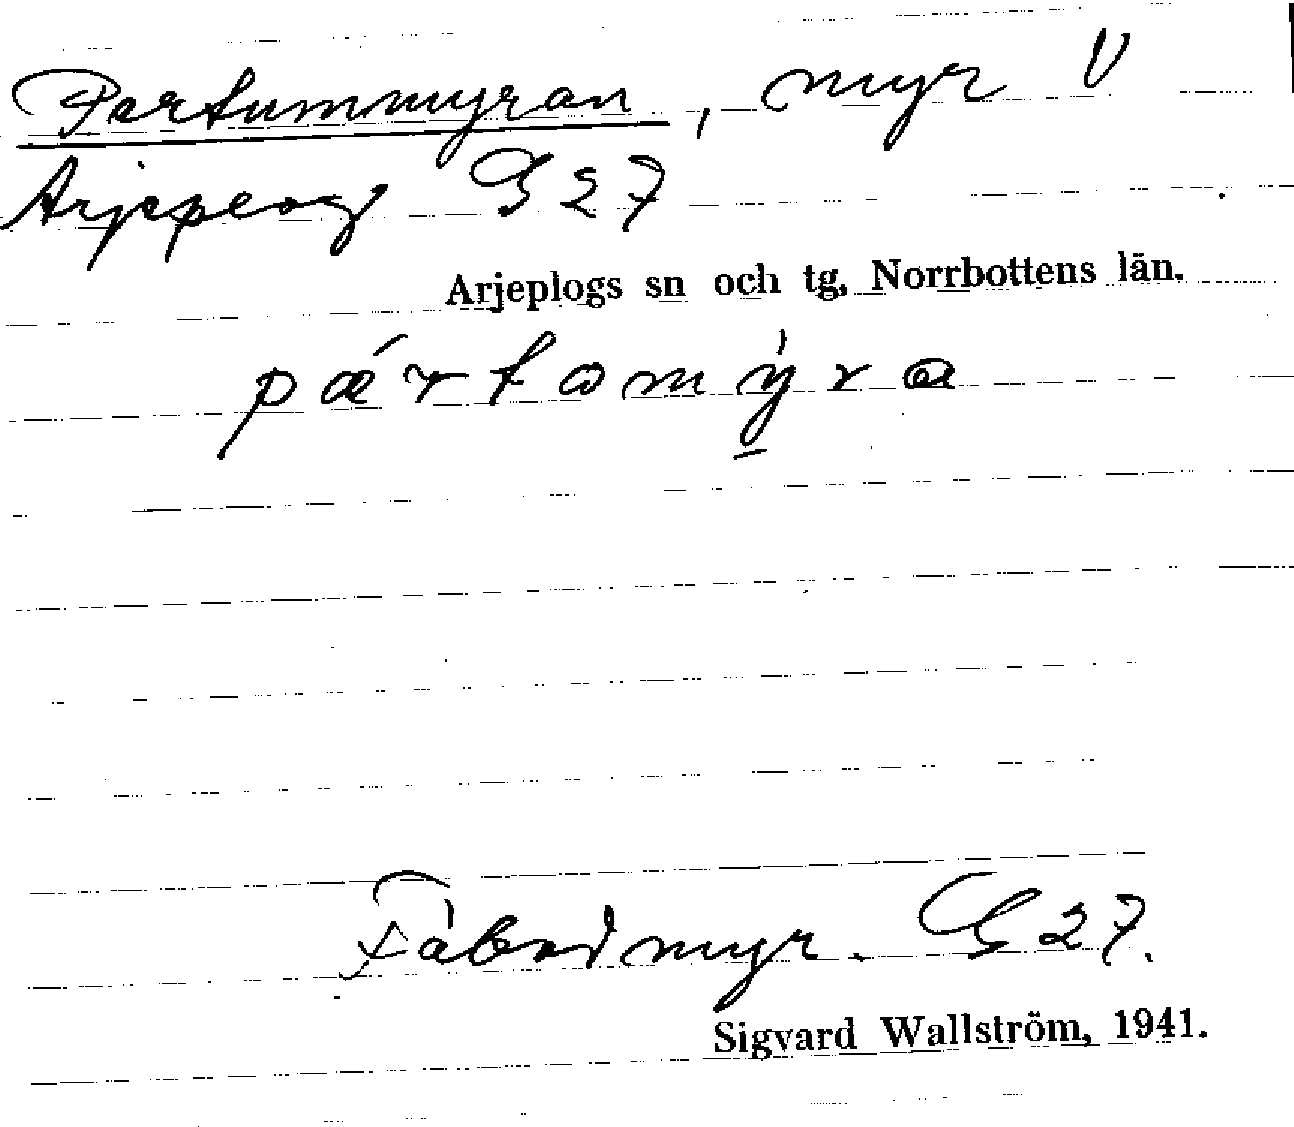 Partummyran, myr V
Arjeplog G 27
Arjeplogs sn och tg, Norrbottens län.
pártomýra
Fäbodmyr. G 27.
Sigvard Wallström, 1941.